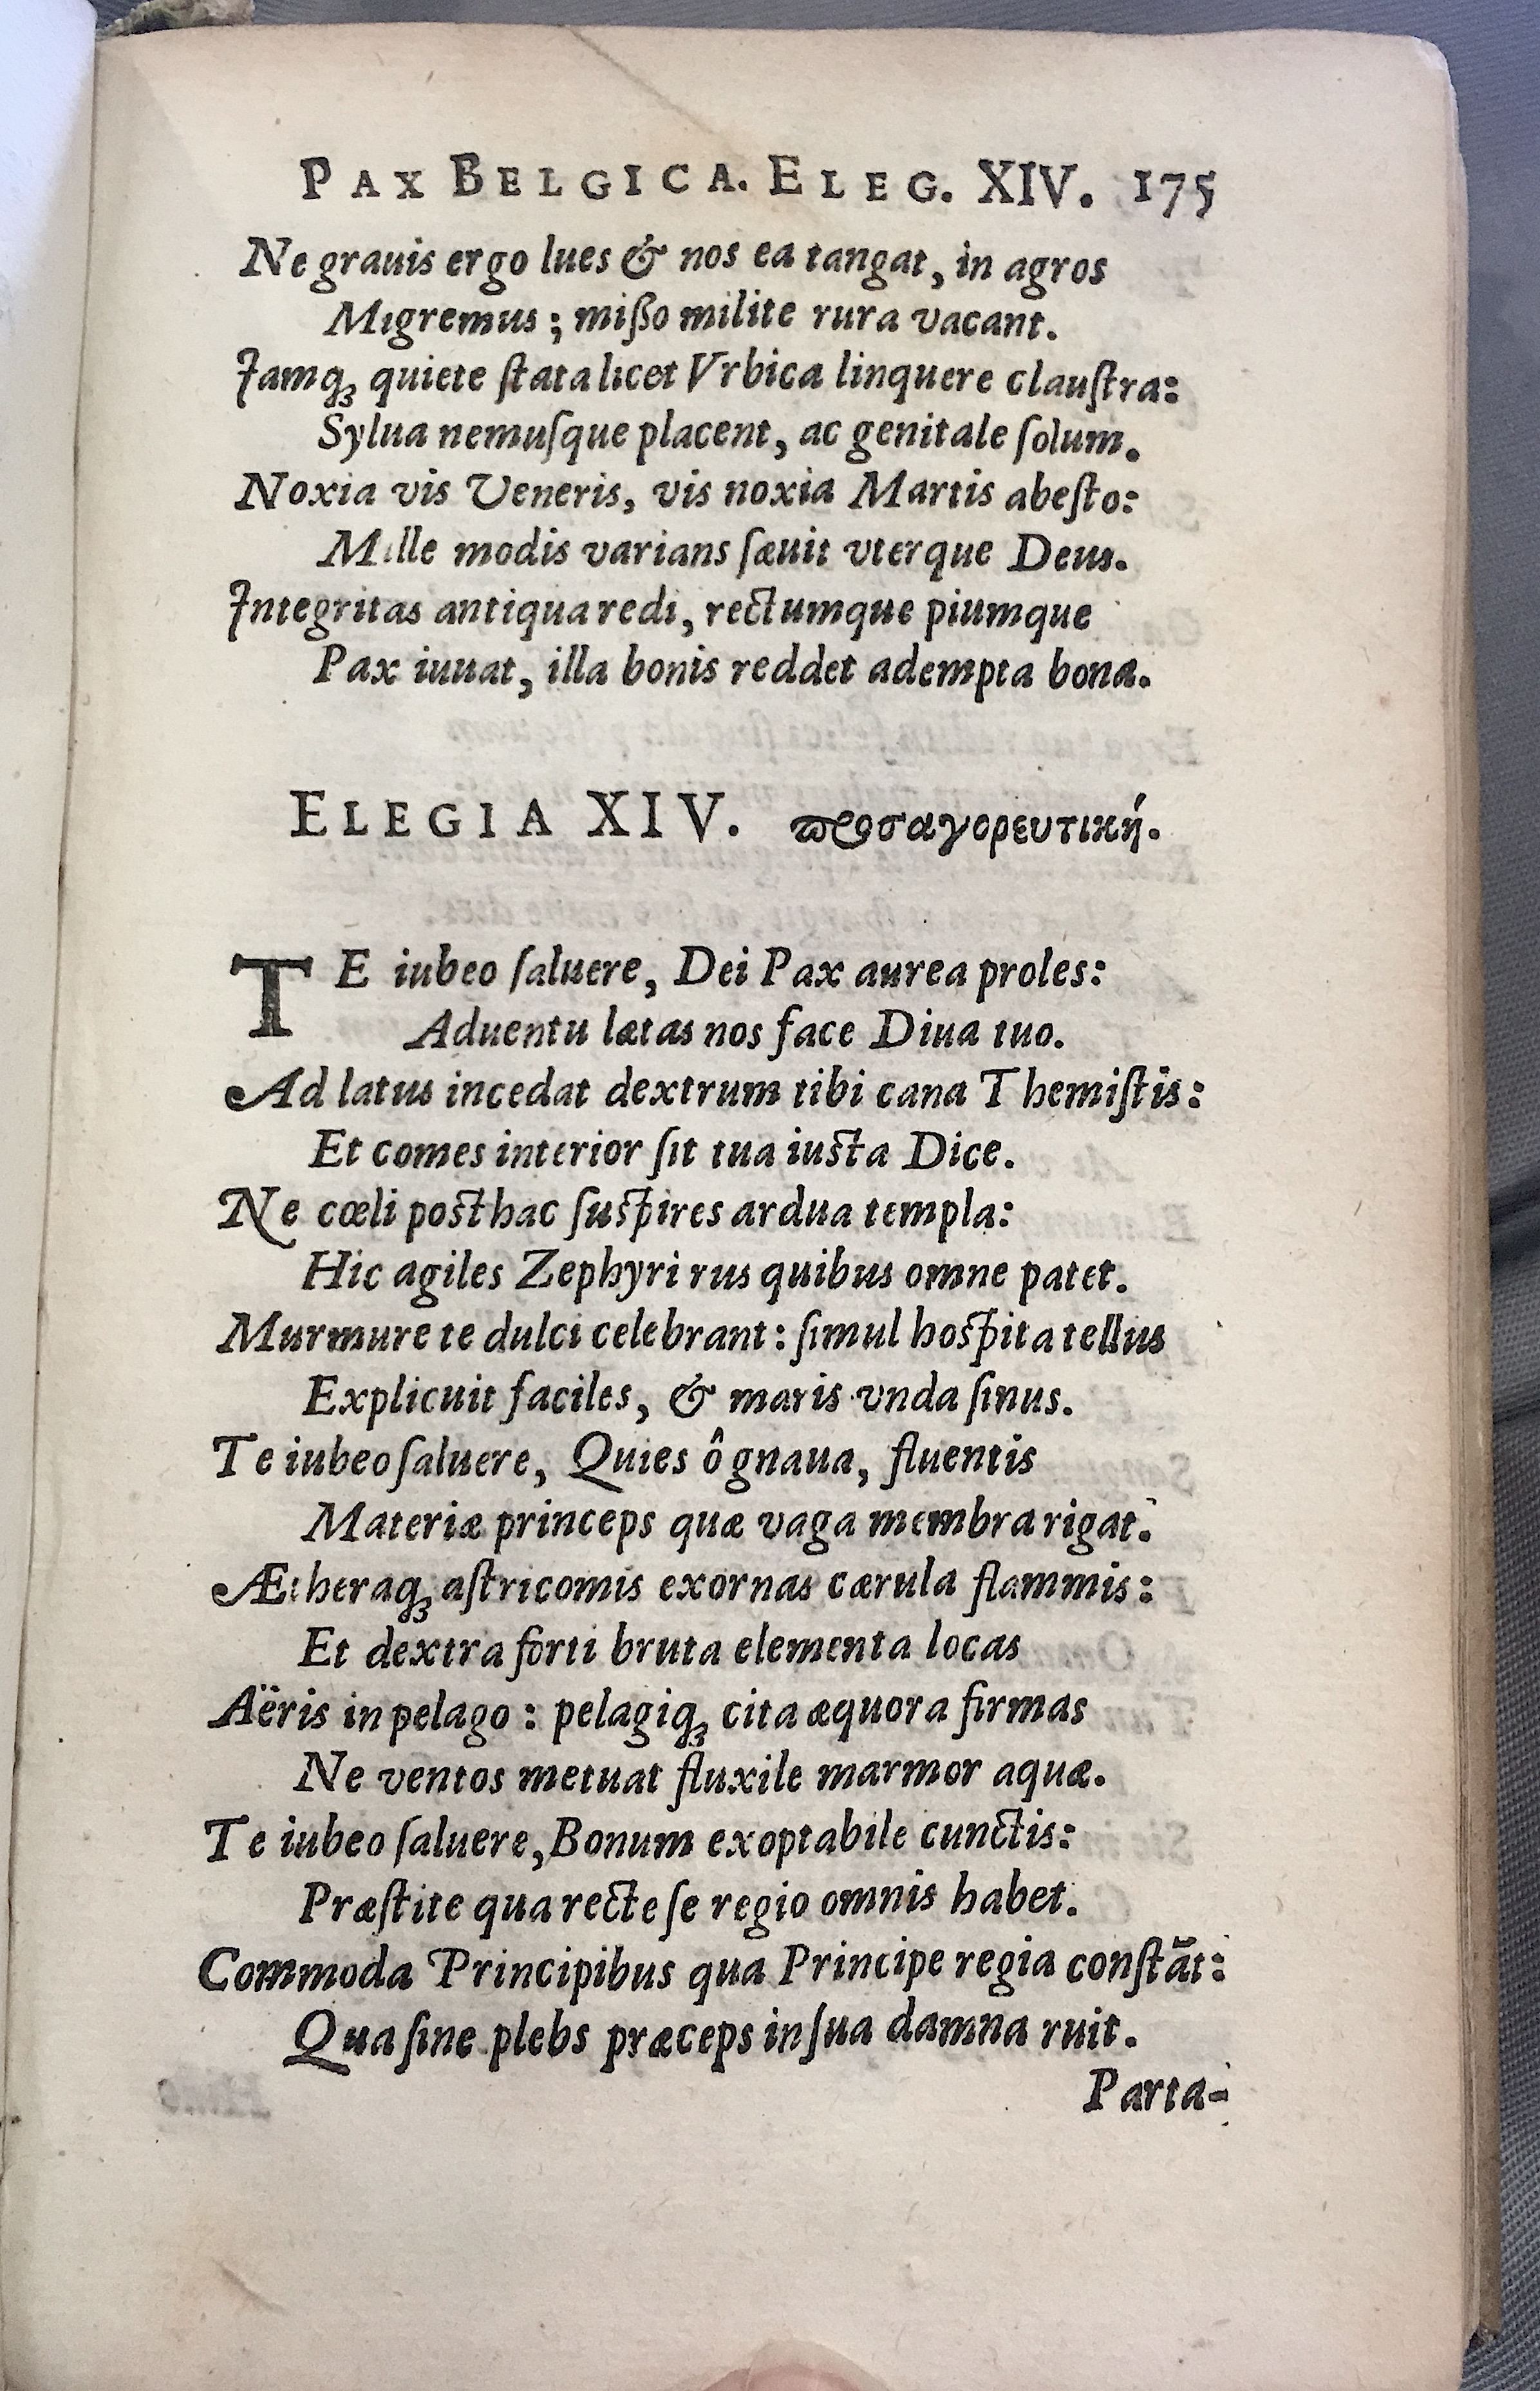 PAX BELGICA. ELEG. XIV. 175
Ne grauis ergo lues & nos ea tangat, in agros
Migremus; mißo milite rura vacant.
Jamq; quiete ſtata licet Vrbica linquere clauſtra:
Sylua nemuſque placent, ac genitale ſolum.
Noxia vis Veneris, vis noxia Martis abeſto:
Mille modis varians ſæuit vterque Deus.
Jntegritas antiqua redi, rectumque piumque
Pax iuuat, illa bonis reddet adempta bona.
ELEGIA XIV. προσαγορευτική.
TE iubeo ſaluere, Dei Pax aurea proles:
Aduentu lætas nos face Diua tuo.
Ad latus incedat dextrum tibi cana Themiſtis:
Et comes interior ſit tua iusta Dice.
Ne cœli posthac ſuspires ardua templa:
Hic agiles Zephyri rus quibus omne patet.
Murmure te dulci celebrant: ſimul hospita tellus
Explicuit faciles, & maris vnda ſinus.
Te iubeo ſaluere, Quies ô gnaua, fluentis
Materiæ princeps quæ vaga membra rigat.
Ætheraq; aſtricomis exornas cærula flammis:
Et dextra forti bruta elementa locas
Aëris in pelago: pelagiq; cita æquora firmas
Ne ventos metuat fluxile marmor aquæ.
Te iubeo ſaluere, Bonum exoptabile cunctis:
Præſtite qua recte ſe regio omnis habet.
Commoda Principibus qua Principe regia conſtãt:
Qua ſine plebs præceps in ſua damna ruit.
Parta-